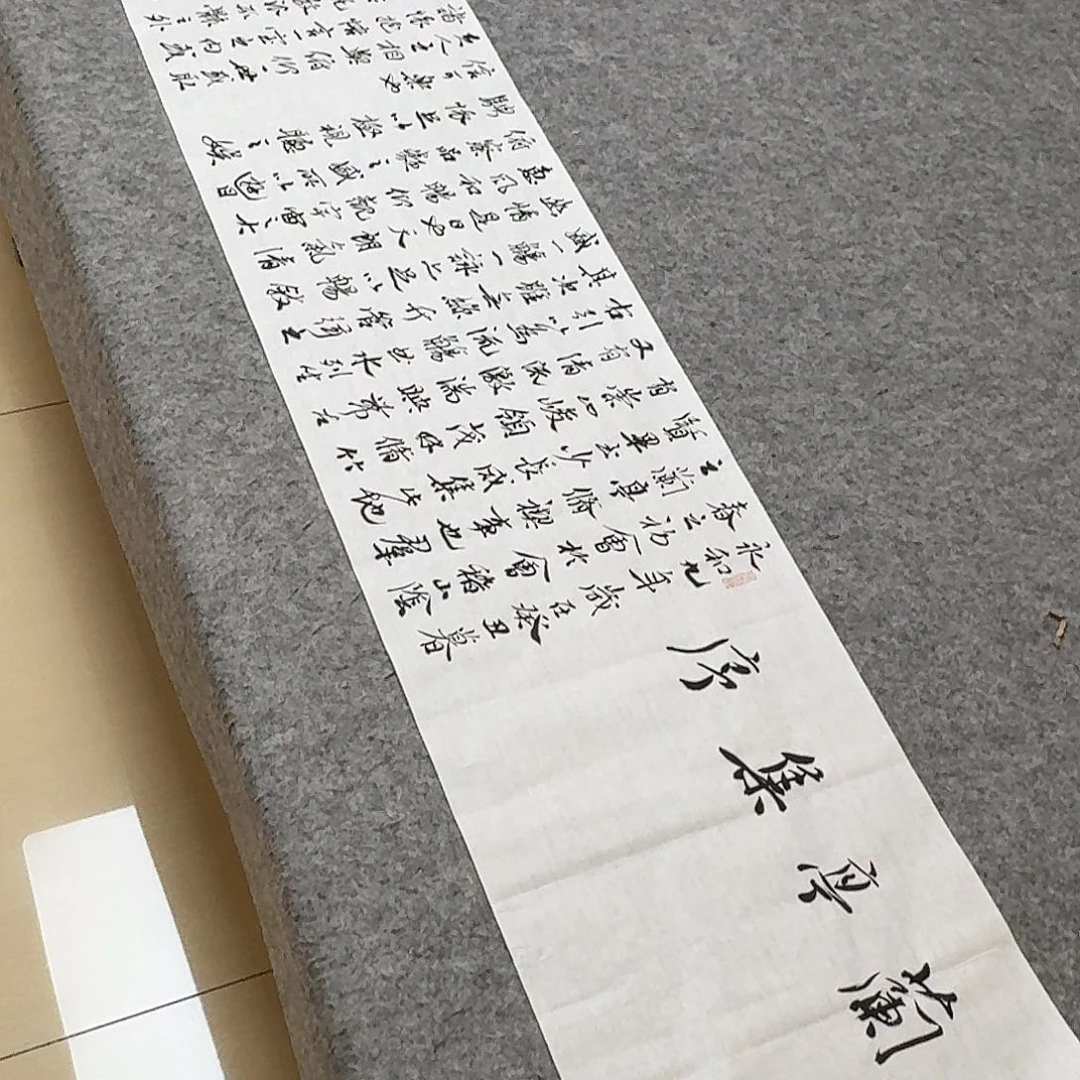 蘭亭集序
永和九年歲在癸丑暮
春之初會於會稽山陰
之蘭亭脩禊事也羣
賢畢至少長咸集此地
有崇山峻領茂林脩竹
又有清流激湍映帶左
右引以為流觴曲水列坐
其次雖無絲竹管弦之
盛一觴一詠亦足以暢敘
幽情是日也天朗氣清
惠風和暢仰觀宇宙之大
俯察品類之盛所以遊目
騁懷足以極視聽之娛
信可樂也
夫人之相與俯仰一世或取
諸懷抱悟言一室之內或
放浪形骸之外